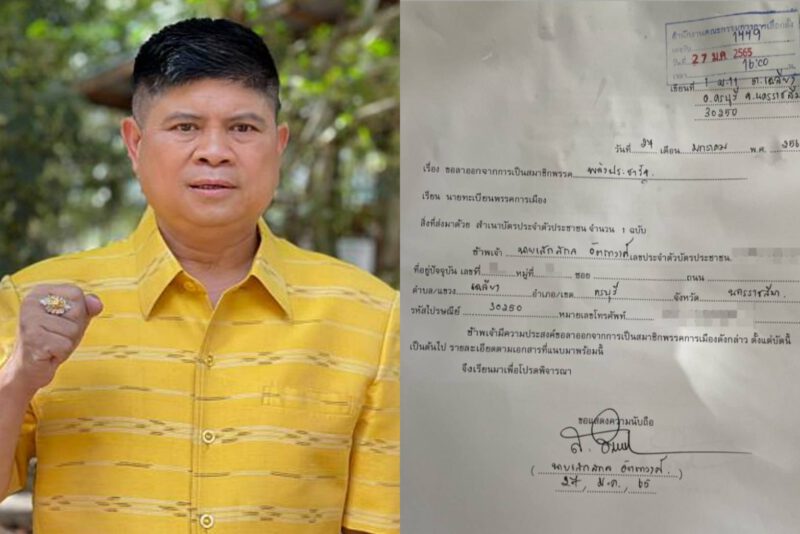 สำนักงานคณะกรรมการการเลือกตั้ง
เลขรับ 1449
วันที่ 27 ม.ค. 2565
เวลา 16:00 น.
เขียนที่ 1 ม.11 ต.เฉลียง
อ.ครบุรี จ.นครราชสีมา
30250
วันที่ 27 เดือน มกราคม พ.ศ. 256
เรื่อง ขอลาออกจากการเป็นสมาชิกพรรค พลังประชารัฐ
เรียน นายทะเบียนพรรคการเมือง
สิ่งที่ส่งมาด้วย สำเนาบัตรประจำตัวประชาชน จำนวน 1 ฉบับ
ข้าพเจ้า นายเสกสกล อัตถาวงศ์ เลขประจำตัวประชาชน
ที่อยู่ปัจจุบัน เลขที่ หมู่ที่ ซอย ถนน
ตำบล/แขวง เฉลียง อำเภอ/เขต ครบุรี จังหวัด นครราชสีมา
รหัสไปรษณีย์ 30250 หมายเลขโทรศัพท์
ข้าพเจ้ามีความประสงค์ขอลาออกจากการเป็นสมาชิกพรรคการเมืองดังกล่าว ตั้งแต่บัดนี้
เป็นต้นไป รายละเอียดตามเอกสารที่แนบมาพร้อมนี้
จึงเรียนมาเพื่อโปรดพิจารณา
ขอแสดงความนับถือ
( นายเสกสกล อัตถาวงศ์ )
27, ม.ค., 65